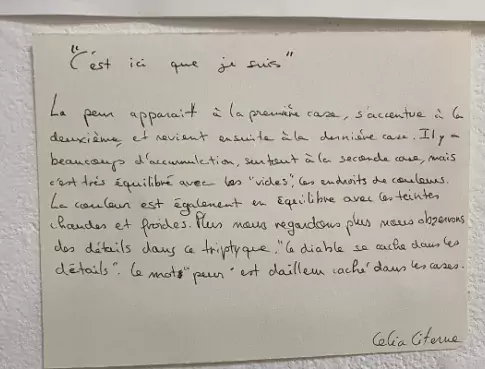 "C'est ici que je suis"
La peur apparait à la première case, s'accentue à la
deuxième, et revient ensuite à la dernière case. Il y a
beaucoup d'accumulation, surtout à la seconde case, mais
c'est très équilibré avec les "vides", les endroits de couleurs.
La couleur est également en équilibre avec les teintes
chaudes et froides. Plus nous regardons plus nous observons
des détails dans ce triptyque. "Le diable se cache dans les
détails". Le mot "peur" est dailleurs caché dans les cases.
Celia Citerne